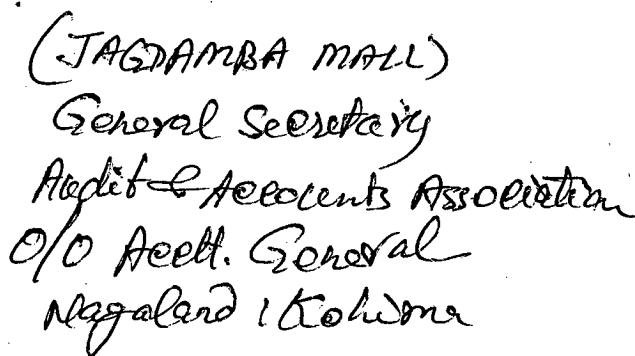 (JAGDAMBA MALL)
General Secretary
Audit & Accounts Association
O/O Acctt. General
Nagaland : Kohima